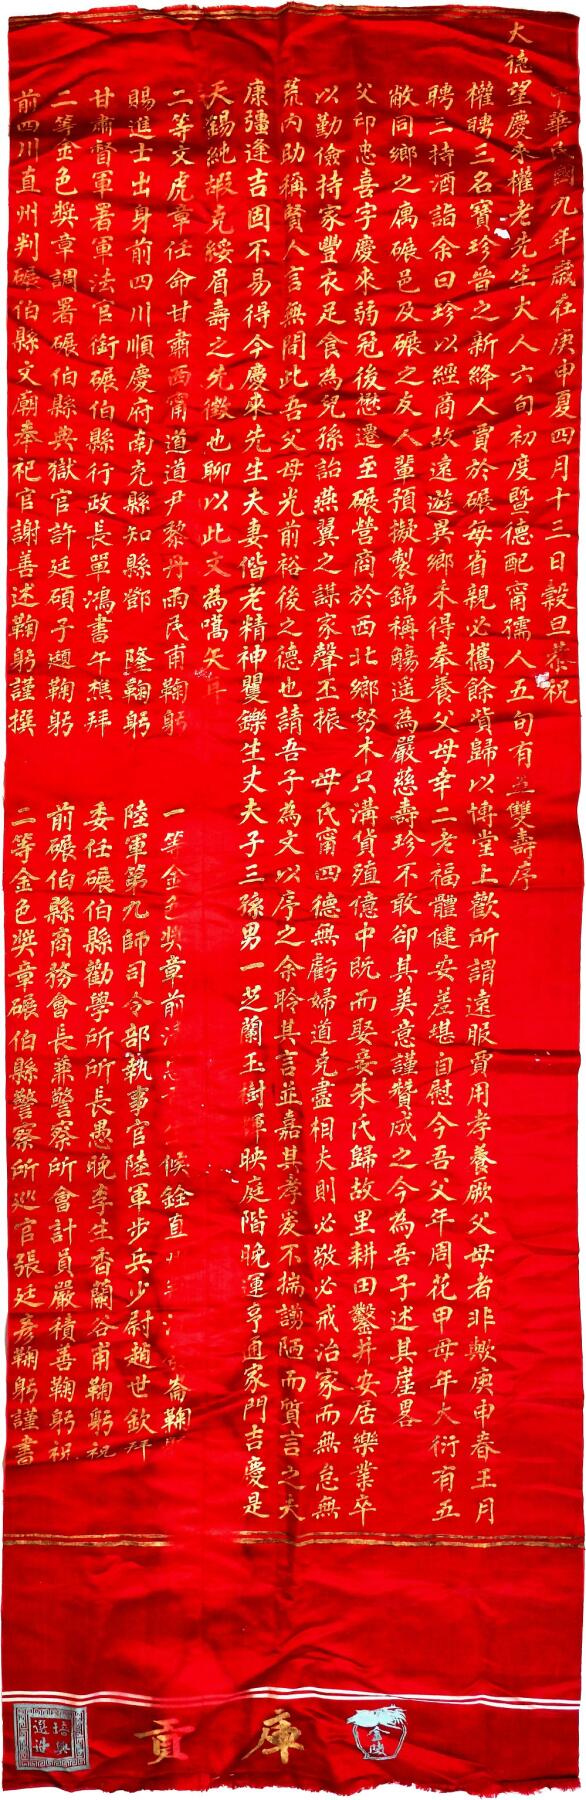 中華民國九年歲在庚申夏四月十三日穀旦恭祝
大德望慶來權老先生大人六旬初度暨德配甯孺人五旬有五雙壽序
權聘三名寶珍晉之新絳人賈於碾每省親必攜餘貲歸以博堂上歡所謂遠服賈用孝養厥父母者非歟庚申春王月
聘三持酒詣余曰珍以經商故遠遊異鄉未得奉養父母幸二老福體健安差堪自慰今吾父年周花甲母年大衍有五
敝同鄉之寓碾邑及碾之友人輩預擬製錦稱觴遙為嚴慈壽珍不敢卻其美意謹贊成之今為吾子述其崖畧
父印忠喜字慶來弱冠後懋遷至碾營商於西北鄉努木只溝貨殖億中既而娶妾朱氏歸故里耕田鑿井安居樂業卒
以勤儉持家豐衣足食為兒孫詒燕翼之謀家聲丕振 母氏甯四德無虧婦道克盡相夫則必敬必戒治家而無怠無
荒內助稱賢人言無間此吾父母光前裕後之德也請吾子為文以序之余聆其言並嘉其孝爰不揣謭陋而質言之夫
康彊逢吉固不易得今慶來先生夫妻偕老精神矍鑠生丈夫子三孫男一芝蘭玉樹暉映庭階晚運亨通家門吉慶是
天錫純嘏克綏眉壽之先徵也聊以此文為嚆矢耳
二等文虎章任命甘肅西甯道道尹黎丹雨民甫鞠躬
賜進士出身前四川順慶府南充縣知縣鄧 隆鞠躬
甘肅督軍署軍法官銜碾伯縣行政長單鴻書午樵拜
二等金色獎章調署碾伯縣典獄官許廷碩子題鞠躬
前四川直州判碾伯縣文廟奉祀官謝善述鞠躬謹撰
一等金色獎章前 候銓直 崙鞠
陸軍第九師司令部執事官陸軍步兵少尉趙世欽拜
委任碾伯縣勸學所所長愚晚李生香蘭谷甫鞠躬祝
前碾伯縣商務會長兼警察所會計員嚴積善鞠躬祝
二等金色獎章碾伯縣警察所巡官張廷彥鞠躬謹書
金陵
庫
貢
培興
選冲